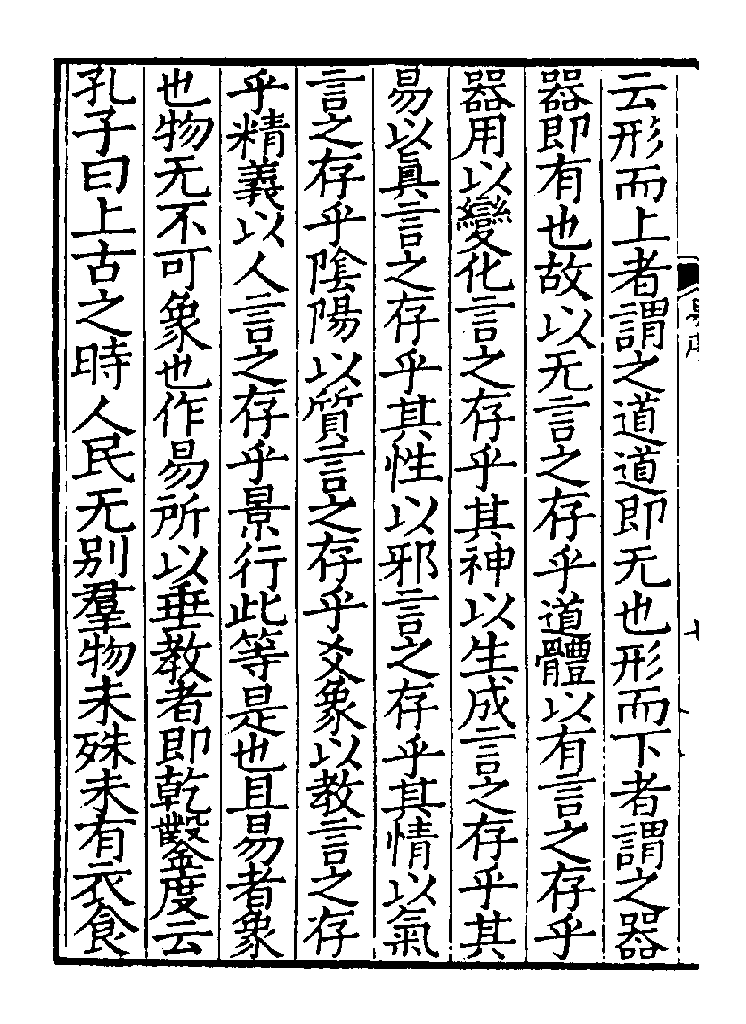 云形而上者謂之道道即无也形而下者謂之器
器即有也故以无言之存乎道體以有言之存乎
器用以變化言之存乎其神以生成言之存乎其
易以眞言之存乎其性以邪言之存乎其情以氣
言之存乎陰陽以質言之存乎爻象以教言之存
乎精義以人言之存乎景行此等是也且易者象
也物无不可象也作易所以垂教者即乾鑿度云
孔子曰上古之時人民无別羣物未殊未有衣食